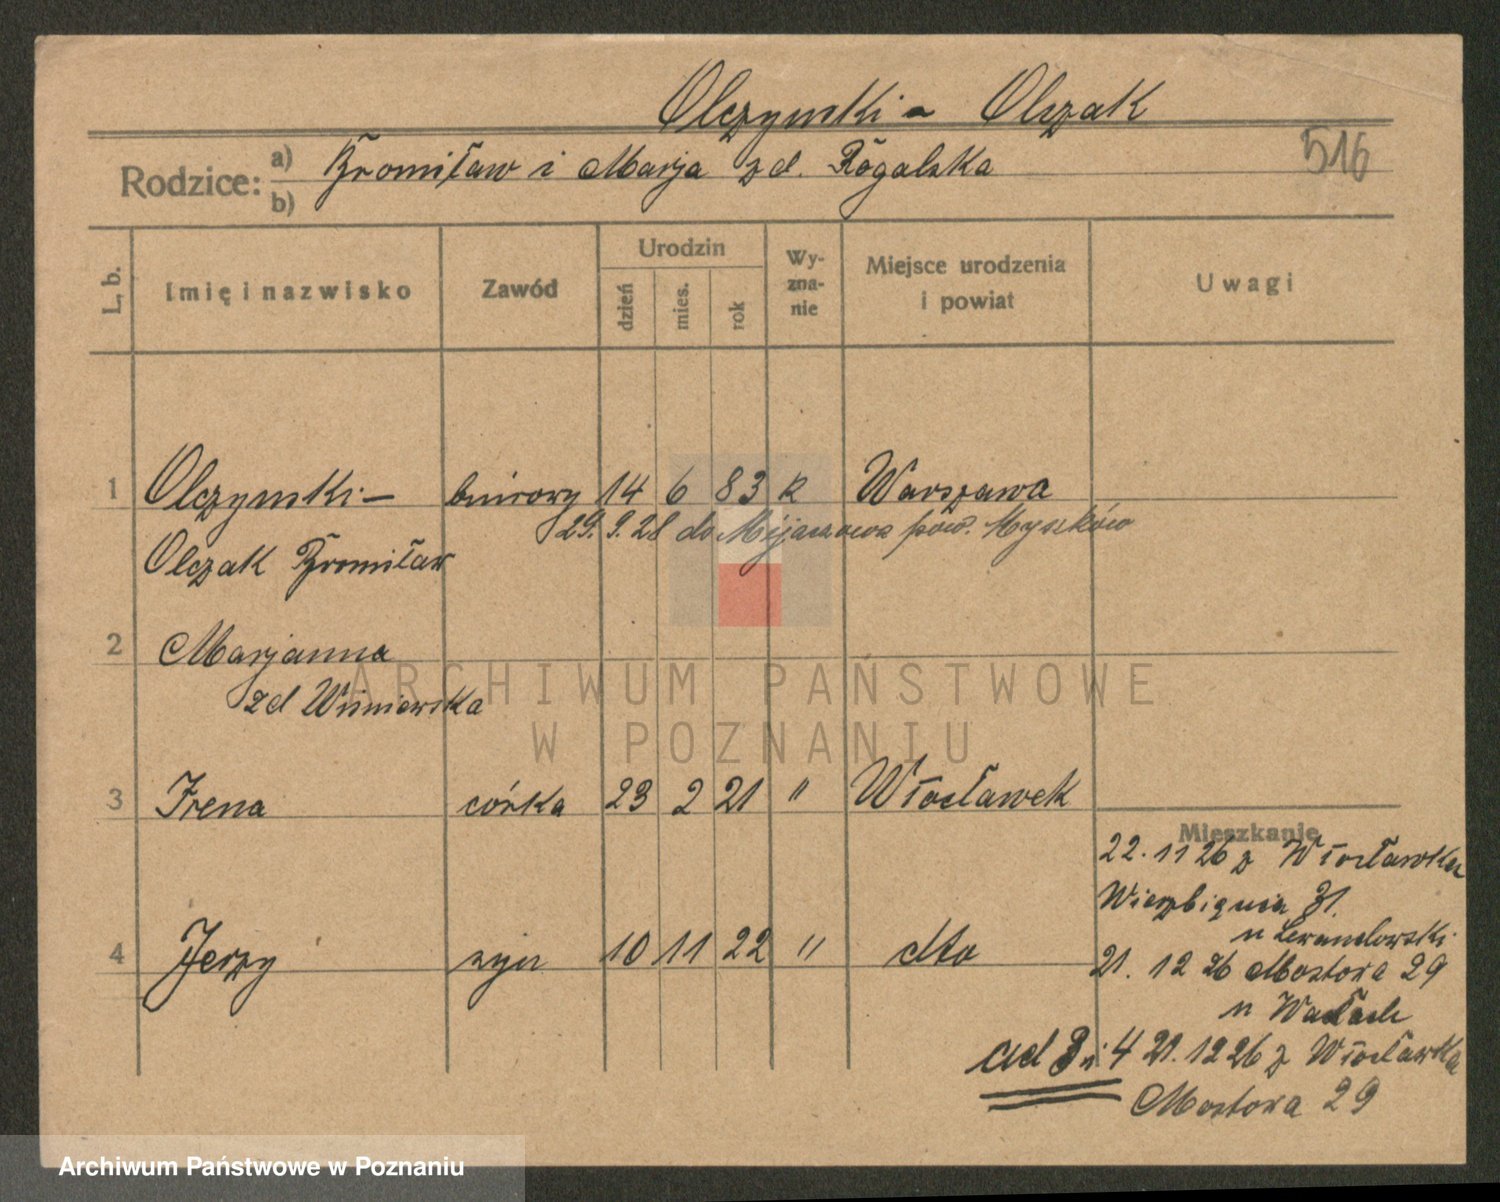 Olczynski - Olczak
516
Rodzice: a) Bronisław i Marja zd. Rogalska
b)
L. b. Imię i nazwisko Zawód Urodzin dzień mies. rok Wy-zna-nie Miejsce urodzenia i powiat Uwagi
1 Olczynski - biurowy 14 6 83 k Warszawa
29.9.28 do Mijaczowa pow. Myszków
Olczak Bronisław
2 Marjanna
zd Wisniewska
3 Irena córka 23 2 21 " Włocławek
Mieszkanie
22.11 26 z Włocławka
Wierzbięcice 31.
u Lewandowski
4 Jerzy syn 10 11 22 " dto
21. 12 26 Mostowa 29
u
ad 3 i 4 21.12 26 z Włocławka
Mostowa 29
ARCHIWUM PAŃSTWOWE
W POZNANIU
Archiwum Państwowe w Poznaniu